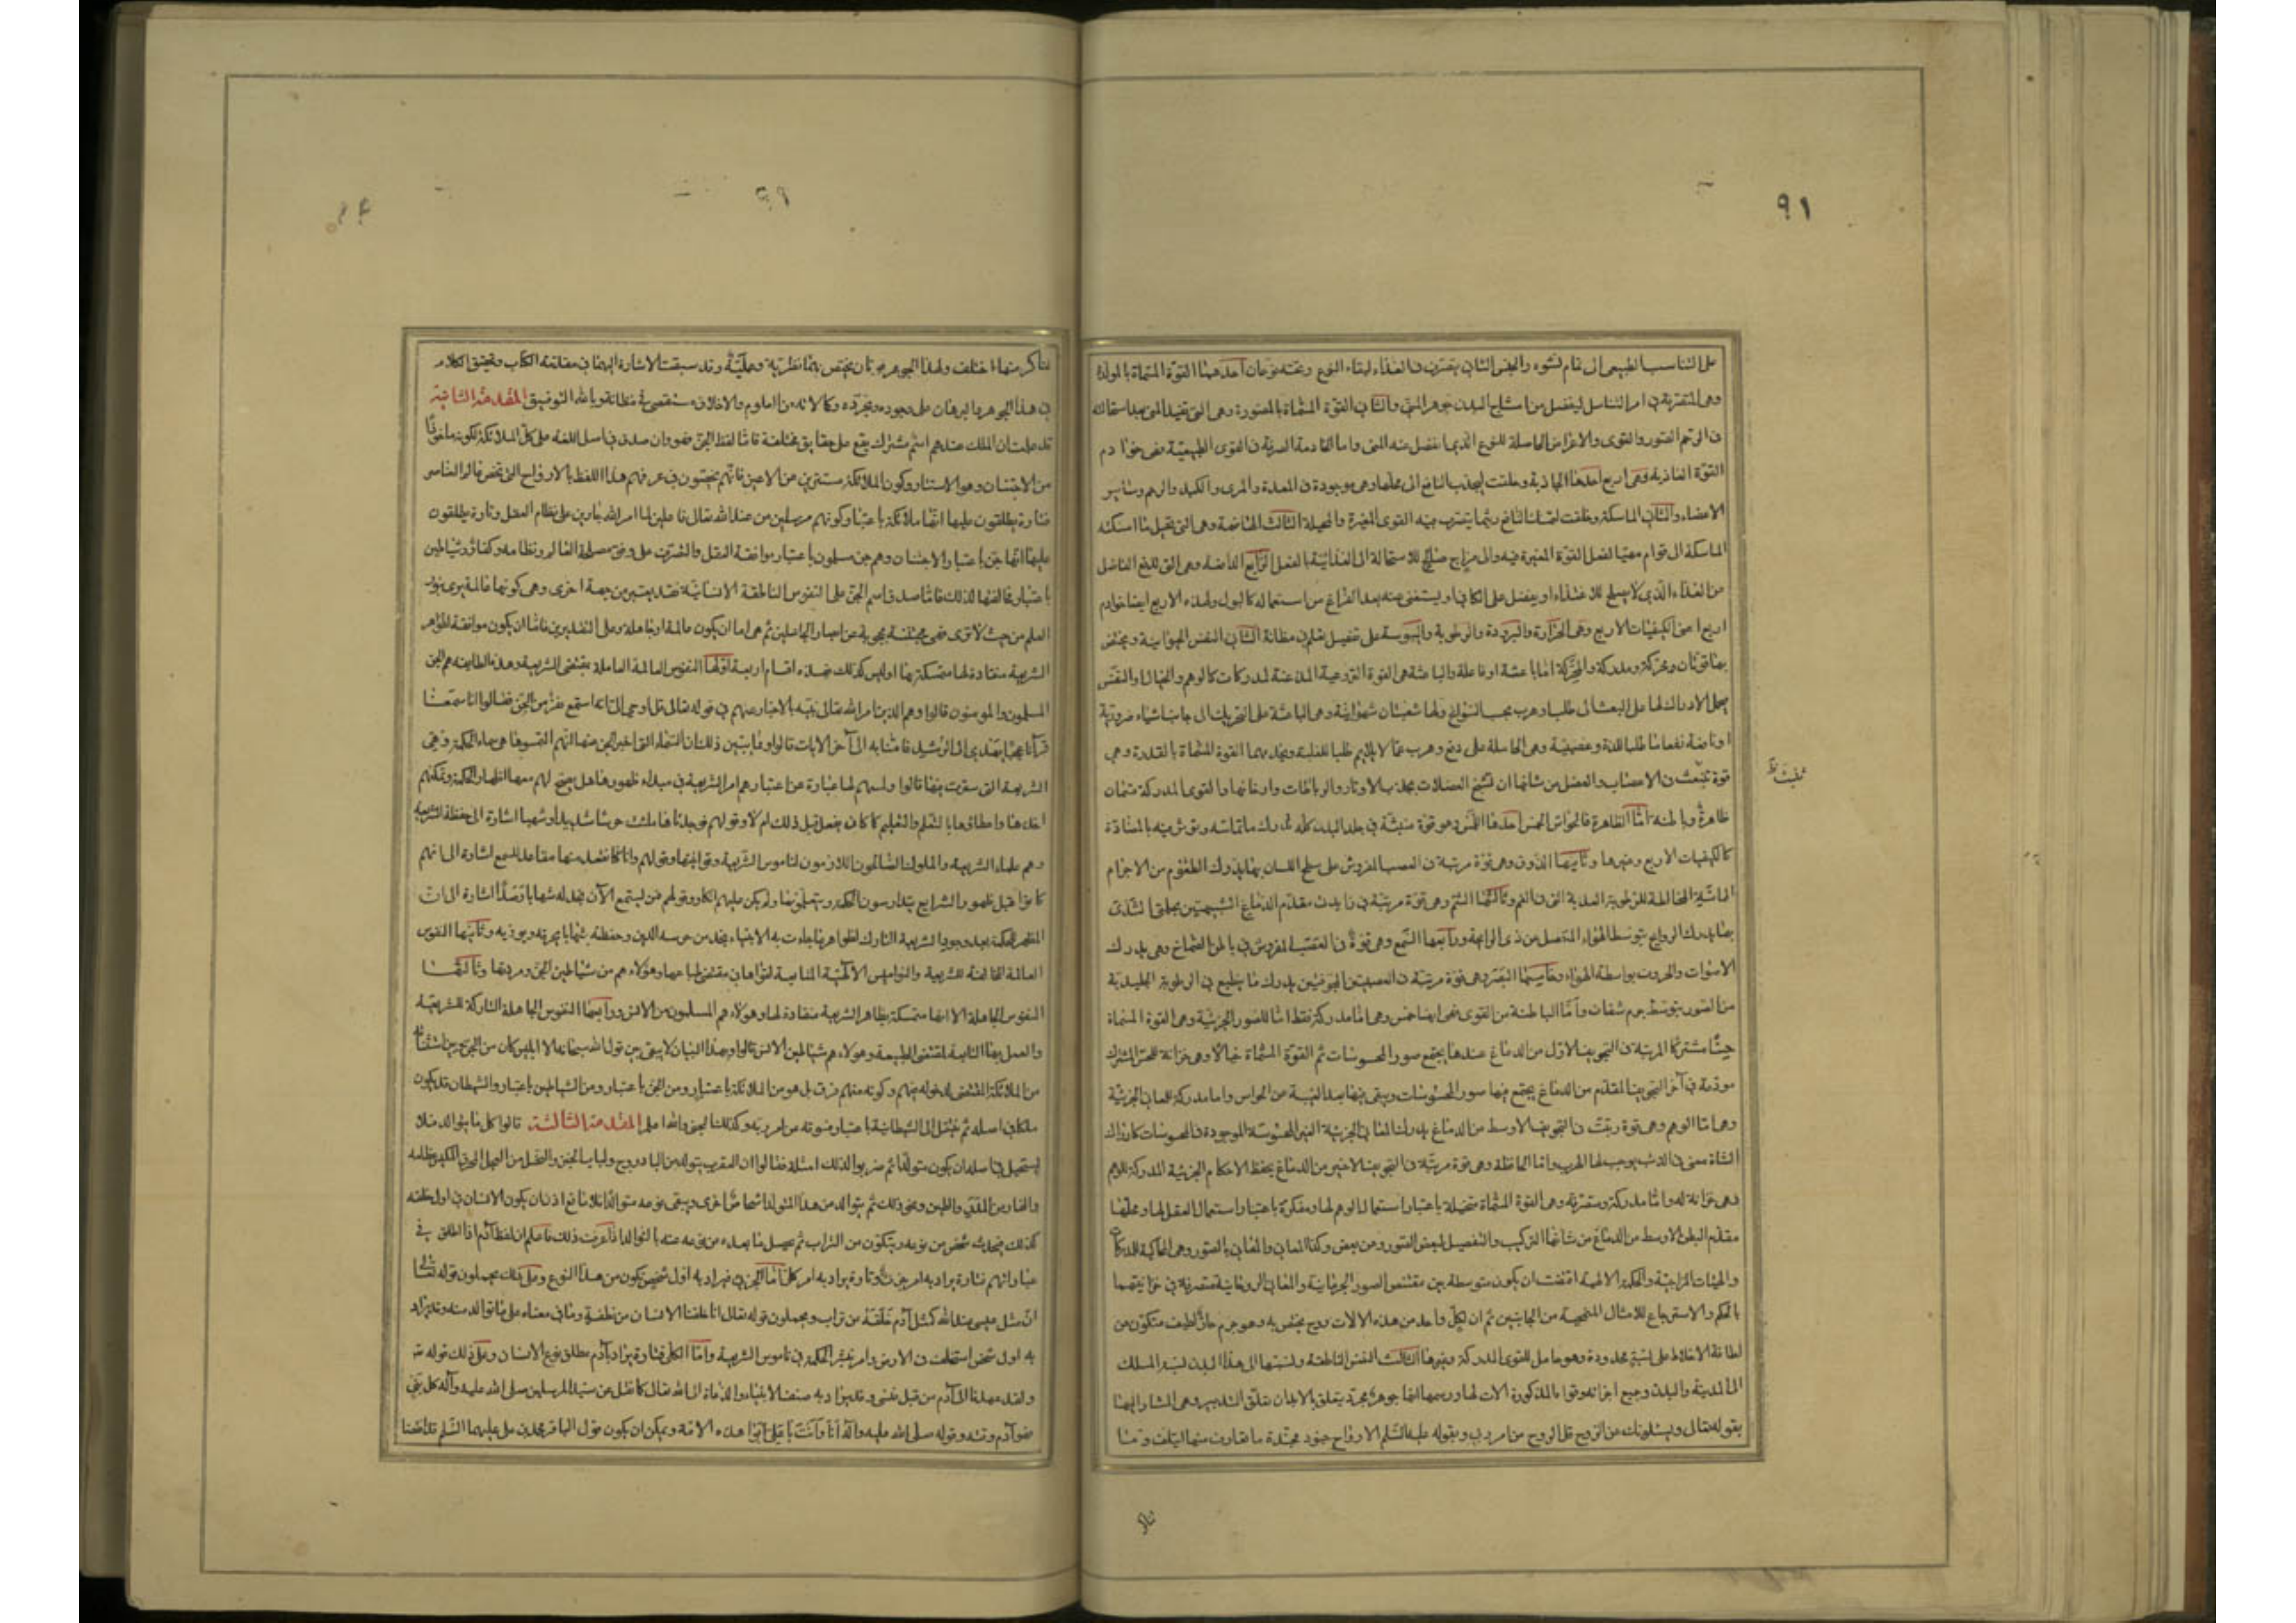 ٩١
على التناسب الطبيعى الى تمام النشوء والجنس الثانى يتصرف فى الغذاء لبقاء النوع وتحته نوعان احدهما القوة المسماة بالمولدة
وهى المتصرفة فى امر التناسل ليفصل من امشاج البدن جوهر المنى والثانى القوة المسماة بالمصورة وهى التى تفيد المنى بعد استحالته
فى الرحم الصور والقوى والاعراض الحاصلة للنوع الذى انفصل عنه المنى واما الخادمة الصرفة فى القوى الطبيعية فهى خوادم
القوة الغاذية وهى اربع احدها الجاذبة وخلقت لتجذب النافع الى محلها وهى موجودة فى المعدة والمرى والكبد والرحم وسائر
الاعضاء والثانى الماسكة وخلقت لتمسك النافع ريثما يتصرف فيه القوى المغيرة والمحيلة الثالث الهاضمة وهى التى تحيل ما امسكته
الماسكة الى قوام مهيأ لفعل القوة المغيرة فيه والى مزاج صالح للاستحالة الى الغذائية بالفعل الرابع الدافعة وهى التى تدفع الفاضل
من الغذاء الذى لا يصلح للاغتذاء او يفضل على الكافى او يستغنى عنه بعد الفراغ من استعماله كالبول ولهذه الاربع ايضا خوادم
اربع اعنى الكيفيات الاربع وهى الحرارة والبرودة والرطوبة واليبوسة على تفصيل علم فى مظانه الثانى النفس الحيوانية ويختص
بها قوتان ومحركة ومدركة والمحركة اما باعثة او فاعلة والباعثة هى القوة النزوعية المذعنة لمدركات كالوهم والخيال والنفس
يحمل الادراك لها على البعث الى طلب او هرب بحسب السوانح ولها شعبتان شهوانية وهى الباعثة على التحريك الى جانب اشياء ضرورية
او نافعة نفعا ما طلبا للذة وغضبية وهى الحاملة على دفع وهرب عما لا يلايم طلبا للغلبة ويخدمهما القوة المسماة بالقدرة وهى
قوة تنبعث فى الاعصاب والعضل من شانها ان تشنج العضلات بجذب الاوتار والرباطات وارخائها والقوى المدركة قسمان
ظاهرة وباطنة اما الظاهرة فالحواس الخمس احدها اللمس وهو قوة منبثة فى جلد البدن كله تدرك ما تماسه ويؤثر فيه بالمضادة
كالكيفيات الاربع وغيرها وثانيها الذوق وهى قوة مرتبة فى العصب المفروش على سطح اللسان بها يدرك الطعوم من الاجرام
المماسة المخالطة للرطوبة العذبة التى فى الفم وثالثها الشم وهى قوة مرتبة فى زايدتى مقدم الدماغ الشبيهتين بحلمتى الثدى
بها يدرك الروايح بتوسط الهواء المتصل من ذى الرايحة ورابعها السمع وهى قوة فى العصب المفروش فى باطن الصماخ وهى يدرك
الاصوات والحروف بواسطة الهواء وخامسها البصر وهى قوة مرتبة فى العصبتين المجوفتين يدرك ما ينطبع فى الرطوبة الجليدية
من الصور بتوسط جرم شفاف واما الباطنة من القوى فهى ايضا خمس وهى اما مدركة فقط اما للصور الجزئية وهى القوة المسماة
حسا مشتركا المرتبة فى التجويف الاول من الدماغ عندها يجتمع صور المحسوسات ثم القوة المسماة خيالا وهى خزانة للحس المشترك
مودعة فى آخر التجويف المقدم من الدماغ يجتمع فيها صور المحسوسات ويبقى فيها بعد الغيبة عن الحواس واما مدركة للمعانى الجزئية
وهى اما الوهم وهى قوة رتبت فى التجويف الاوسط من الدماغ يدرك المعانى الجزئية الغير المحسوسة الموجودة فى المحسوسات كادراك
الشاة معنى فى الذئب يوجب لها الهرب واما الحافظة وهى قوة مرتبة فى التجويف الاخير من الدماغ يحفظ الاحكام الجزئية المدركة للوهم
وهى خزانة له واما مدركة ومتصرفة وهى القوة المسماة متخيلة باعتبار استعمال الوهم لها ومفكرة باعتبار استعمال العقل لها ومحلها
مقدم البطن الاوسط من الدماغ من شانها التركيب والتفصيل لبعض الصور عن بعض وكذا المعانى والمعانى بالصور وهى الحاكية للمدركات
والهيئات المزاجية والحكمة الالهية اقتضت ان يكون متوسطة بين مقتضى الصور الجرمانية والمعانى الروحانية متصرفة فى خزانتيهما
بالحكم والاسترجاع للامثال المنمحية من الجانبين ثم ان لكل واحد من هذه الالات روح يختص به وهو جرم حار لطيف متكون من
لطافة الاخلاط على نسبة محدودة وهو حامل للقوى المدركة وغيرها الثالث النفس الناطقة ونسبتها الى هذا البدن نسبة الملك
الى المدينة والبدن وجميع اجزائه وقواه المذكورة الات لها ورسمها انها جوهر مجرد يتعلق بالابدان تعلق التدبير وهى المشار اليها
بقوله تعالى ويسئلونك عن الروح قل الروح من امر ربى وبقوله عليه السلم الارواح جنود مجندة ما تعارف منها ايتلف وما
تناكر منها اختلف ولهذا الجوهر قوتان يختص بهما نظرية وعملية وقد سبقت الاشارة اليهما فى مقدمة الكتاب وتحقيق الكلام
فى هذا الجوهر والبرهان على وجوده وتجرده وكمالاته من العلوم والاخلاق مستقصى فى مظانه وبالله التوفيق المقدمة الثانية
قد علمت ان الملك عندهم اسم مشترك يقع على حقايق مختلفة فاما لفظ الجن فهو وان صدق فى اصل اللغة على كل الملائكة لكونه ماخوذا
من الاجتنان وهو الاستتار وكون الملائكة مستترين عن الاعين فانهم يخصون فى عرفهم هذا اللفظ بالارواح التى تخص عالم العناصر
فتارة يطلقون عليها انها ملائكة باعتبار كونهم مرسلين من عند الله تعالى فاعلين لما امر الله جارين على نظام العقل وتارة يطلقون
عليها انها جن باعتبار الاجتنان وهم جن مسلمون باعتبار موافقة العقل والتصرف على وفق مصلحة العالم ونظامه وكفار وشياطين
باعتبار مخالفتها لذلك فاما صدق اسم الجن على النفوس الناطقة الانسانية فقد يعتبر من جهة اخرى وهى كونها عالمة يرى بنور
العلم من حيث لا ترى فهى مجتنة محجوبة عن ابصار الجاهلين ثم هى اما ان يكون عالمة او جاهلة وعلى التقديرين فاما ان يكون موافقة لظواهر
الشريعة منقادة لها متمسكة بها او ليس كذلك فهذه اقسام اربعة اولها النفوس العالمة العاملة بمقتضى الشريعة وهذه الطايفة هم الجن
المسلمون والمومنون قالوا وهم الذين امر الله تعالى نبيه بالاخبار عنهم فى قوله تعالى قل اوحى الى انه استمع نفر من الجن فقالوا انا سمعنا
قرآنا عجبا يهدى الى الرشد فامنا به الى آخر الايات قالوا ومما يبين ذلك ان السماء التى اخبر الجن عنها انهم لمسوها هى سماء الحكمة وهى
الشريعة التى
اخذها وانطاقها بالتعلم والتعليم كما كان يفعل قبل ذلك ام لا وقولهم فوجدناها ملئت حرسا شديدا وشهبا اشارة الى حفظة الشريعة
وهم علماء الشريعة والملوك السالمون اللازمون لناموس الشريعة وقوانينها وقولهم وانا كنا نقعد منها مقاعد للسمع اشارة الى انهم
كانوا قبل ظهور الشرايع يتدارسون الحكمة ويتعلمونها ولم يكن عليهم انكار وقولهم فمن يستمع الآن يجد له شهابا رصدا اشارة الى ان
المظهر للحكمة بعد وجود الشريعة التارك لظواهر ما جاءت به الانبياء يجد من حرسة الدين وحفظته شهابا يحرقه ويوذيه وثانيها النفوس
العالمة المخالفة للشريعة والنواميس الالهية التابعة لقواها فى مقتضى طباعها وهؤلاء هم من شياطين الجن ومردتها وثالثها
النفوس الجاهلة الا انها متمسكة بظاهر الشريعة منقادة لها وهؤلاء هم المسلمون من الانس ورابعها النفوس الجاهلة التاركة للشريعة
والعمل بها التابعة لمقتضى الطبيعة وهؤلاء هم شياطين الانس قالوا وبهذا البيان لا يبقى بين قول الله سبحانه الا ابليس كان من الجن وبين استثنائه
من الملائكة المقتضى لدخوله فيهم وكونه منهم فرق بل هو من الملائكة باعتبار ومن الجن باعتبار ومن الشياطين باعتبار والشيطان قد يكون
ملكا فى اصله ثم ينتقل الى الشيطانية باعتبار فسوقه عن امر ربه وكذلك الجنى والله اعلم المقدمة الثالثة قالوا كل ما يتوالد فلا
يستحيل فى اصله ان يكون متولدا ثم ضربوا لذلك امثلة فقالوا ان العقرب يتولد من الباذروج ولباب الخبز والنحل من العجل
والفار من المدر والطين ونحو ذلك ثم يتوالد من هذا المتولد اشخاصا اخرى ويبقى نوعه متوالدا فلا مانع اذن ان يكون الانسان فى اول خلقته
كذلك فيحدث شخص من نوعه ويتكون من التراب ثم يحصل ما بعده من نوعه عنه بالتوالد اذا عرفت ذلك فاعلم ان لفظ آدم اذا اطلق فى
عباراتهم فتارة يراد به امر جزئى وتارة يراد به امر كلى اما الجزئى فيراد به اول شخص يكون من هذا النوع وعلى ذلك يحملون قوله تعالى
ان مثل عيسى عند الله كمثل آدم خلقه من تراب ويحملون قوله تعالى انا خلقنا الانسان من نطفة وما فى معناه على ما توالد منه وقد يراد
به اول شخص استخلف فى الارض وامر بنشر الحكمة فى ناموس الشريعة واما الكلى فتارة يراد بآدم مطلق نوع الانسان وعلى ذلك قوله تعـ
ولقد عهدنا الى آدم من قبل فنسى وقد يراد به صنف الانبياء والدعاة الى الله تعالى كما نقل عن سيد المرسلين صلى الله عليه وآله كل نبى
فهو آدم وقته وقوله صلى الله عليه وآله انا وانت يا على ابوا هذه الامة ويمكن ان يكون قول الباقر محمد بن على عليهما السلم قد انقضى